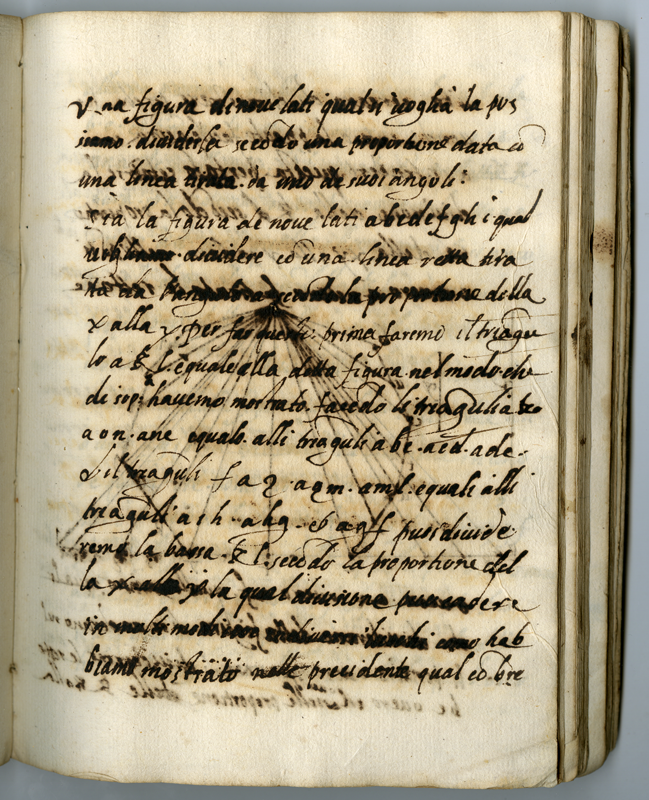 Una figura di nove lati qual si voglia la pos
siamo dividerla secōdo una proportione data cō
una linea tirata da uno de suoi angoli:
Sia la figura de nove lati a b c d e f g h i qual
vogliamo dividere cō una linea retta tira
ta da l'angulo a secōdo la proportione della
x alla y. per far questo prima faremo il triāgu
lo a k l equale alla detta figura nel modo che
di sop: havemo mostrato. facēdo li triāguli a k o
a o n. a n e equali alli triāguli a b c. a c d. a d e.
Et li triāguli f a q. a q m. a m l. equali alli
triāguli a i h. a h g. et a g f puoi divide
remo la bassa k l secōdo la proportione del
la x alla y la qual divisione puo cadere
in multi modi cōmo hab
biamo mostrato nelle precedente qual cō bre